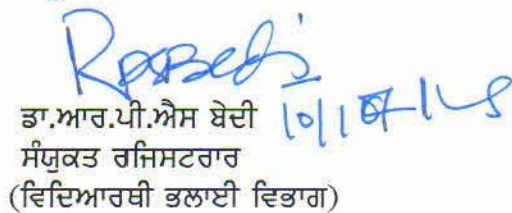 ਡਾ.ਆਰ.ਪੀ.ਐਸ ਬੇਦੀ
ਸੰਯੁਕਤ ਰਜਿਸਟਰਾਰ
(ਵਿਦਿਆਰਥੀ ਭਲਾਈ ਵਿਭਾਗ)